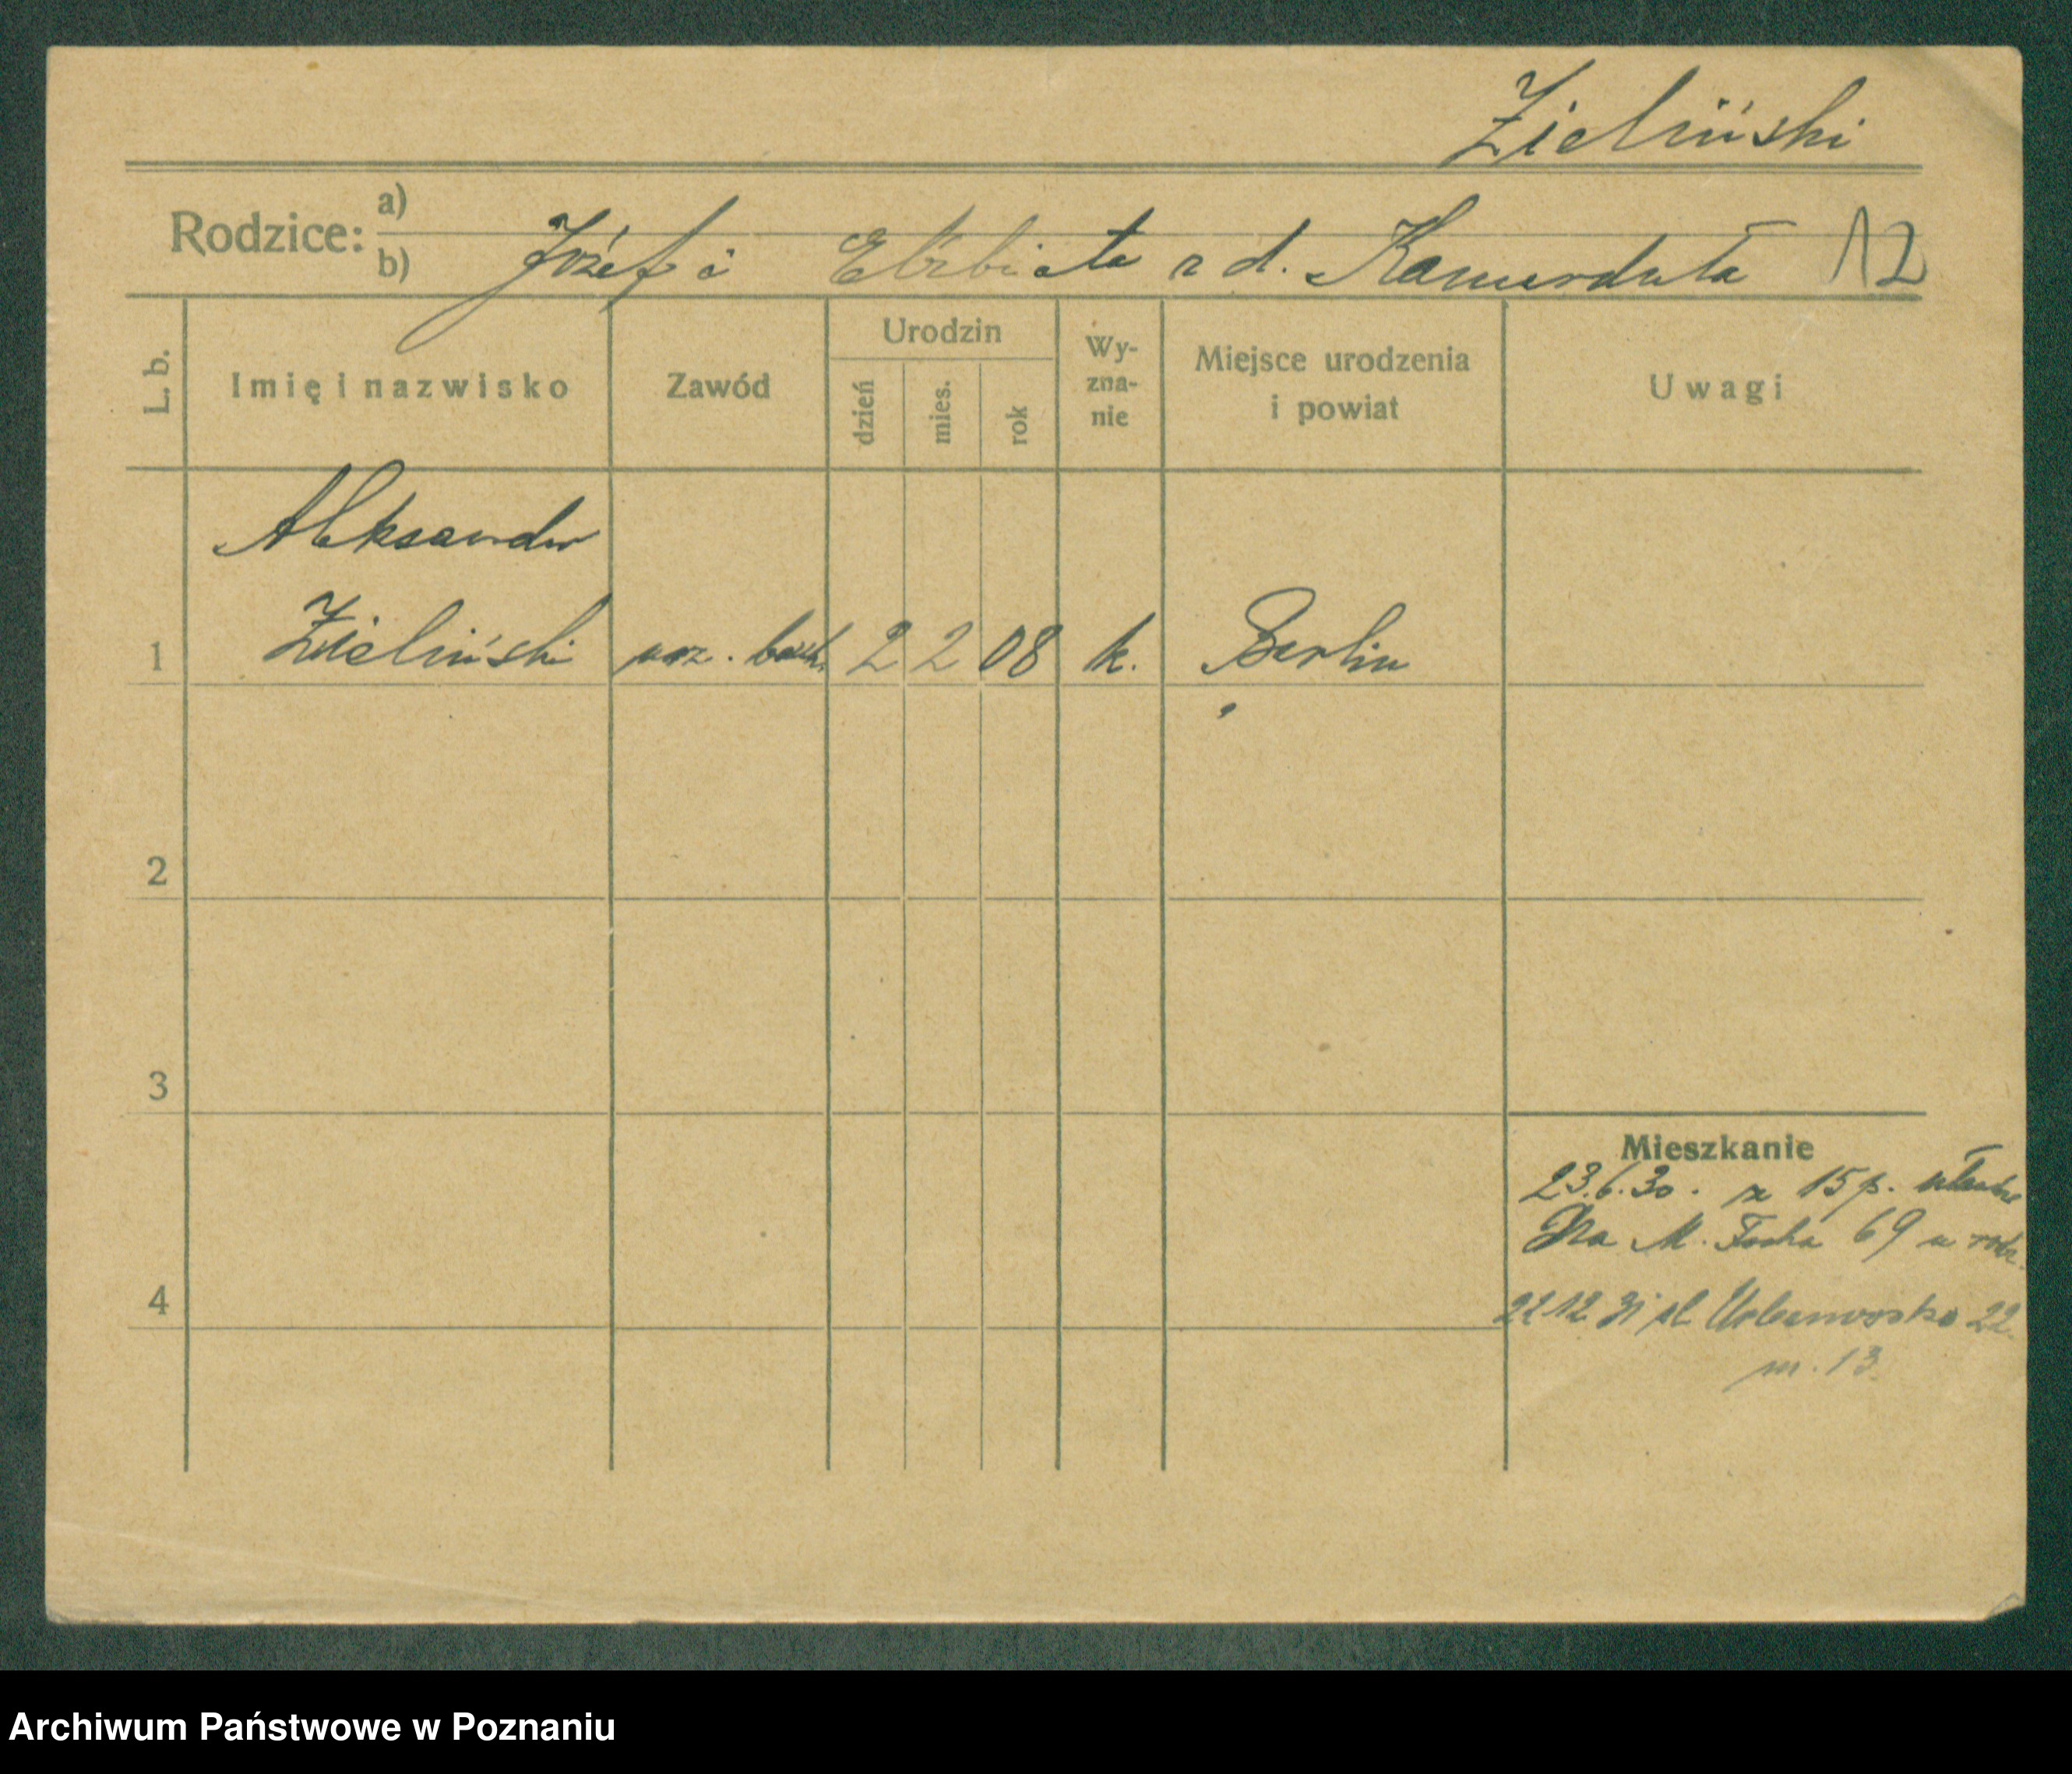 Zieliński
Rodzice: a)
b) Józef i Elżbieta z d. Kamerduła 12
L. b.
Imię i nazwisko
Zawód
Urodzin
dzień
mies.
rok
Wy-
zna-
nie
Miejsce urodzenia
i powiat
Uwagi
Aleksander
1 Zieliński ucz. 2 2 08 k. Berlin
2
3
Mieszkanie
23.6.30. z 15 p. ułanów
Na M. Focha 69 u rodz.
4
22 12 31 pl 22
m. 13
Archiwum Państwowe w Poznaniu